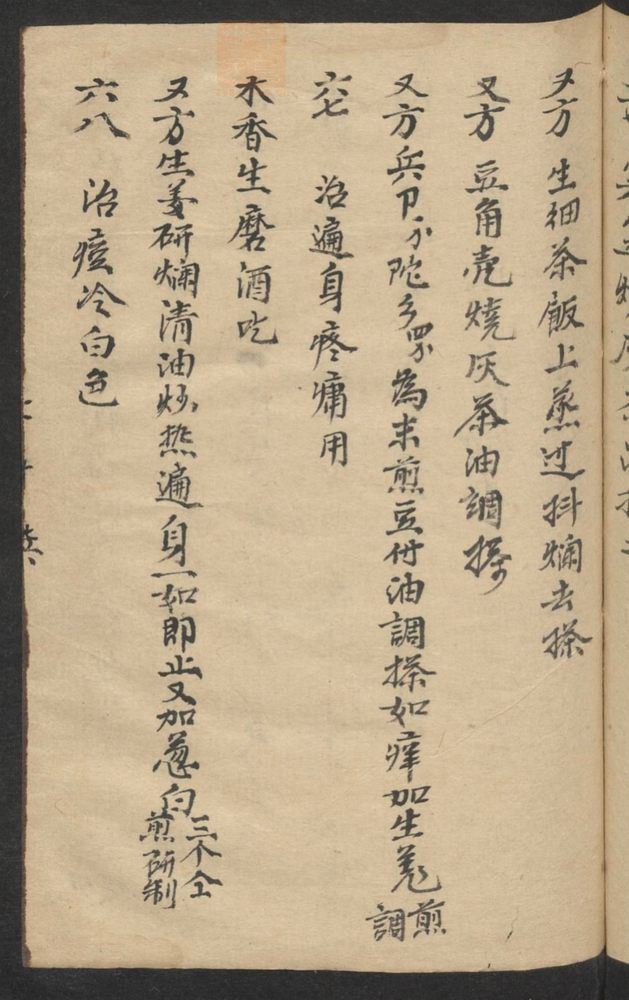 又方 生细茶飯上蒸过抖爛去搽
又方 豆角壳燒灰茶油調搽
又方兵 為末煎豆付油調搽如痒加生羗煎調
六七 治遍身疼痛用
木香生磨酒吃
又方生姜研爛清油炒热遍身一如即止又加葱白三个仝煎研制
六八 治痘冷白色